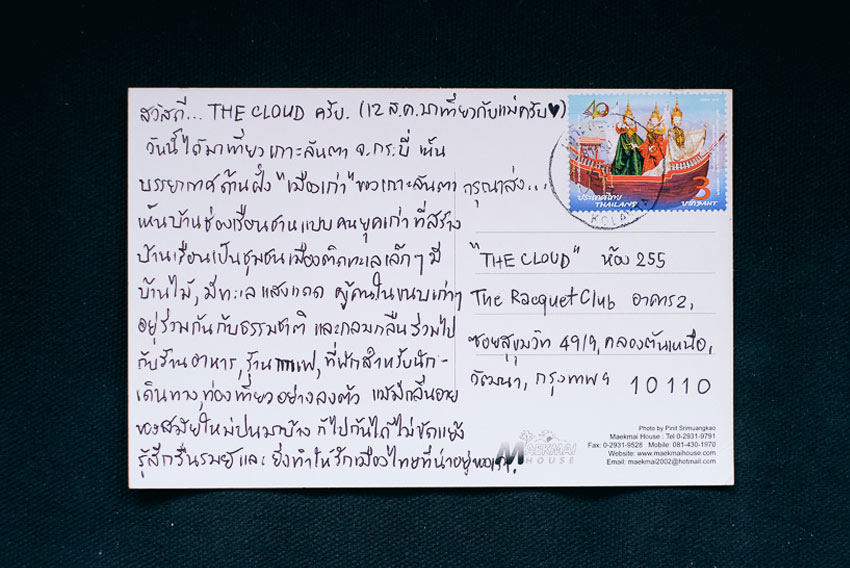 สวัสดี... THE CLOUD ครับ. (12 ส.ค. มาเที่ยวกับแม่ครับ♥)
วันนี้ได้มาเที่ยว เกาะลันตา จ.กระบี่ เห็น
บรรยากาศด้านฝั่ง "เมืองเก่า" ของเกาะลันตา
เห็นบ้านช่องเรือนชานแบบคนยุคเก่า ที่สร้าง
บ้านเรือนเป็นชุมชนเมืองติดทะเลเล็กๆ มี
บ้านไม้, มีทะเล แสงแดด ผู้คนในแบบเก่าๆ
อยู่ร่วมกันกับธรรมชาติ และกลมกลืนร่วมไป
กับร้านอาหาร, ร้านกาแฟ, ที่พักสำหรับนัก-
เดินทาง, ท่องเที่ยวอย่างลงตัว แม้มีกลิ่นอาย
ของสมัยใหม่ปนมาบ้าง ก็ไปกันได้ไม่ขัดแย้ง
รู้สึกรื่นรมย์และ ยิ่งทำให้รักเมืองไทยที่น่าอยู่ของเรา.
กรุณาส่ง...
"THE CLOUD" ห้อง 255
The Racquet Club อาคาร 2,
ซอยสุขุมวิท 49/9, คลองตันเหนือ,
วัฒนา, กรุงเทพฯ 10110
40
ประเทศไทย
THAILAND
3
บาท BAHT
MAEKMAI
HOUSE
Photo by Pinit Srimuangkao
Maekmai House : Tel 0-2931-9791
Fax: 0-2931-9528 Mobile: 081-430-1970
Website: www.maekmaihouse.com
Email: maekmai2002@hotmail.com